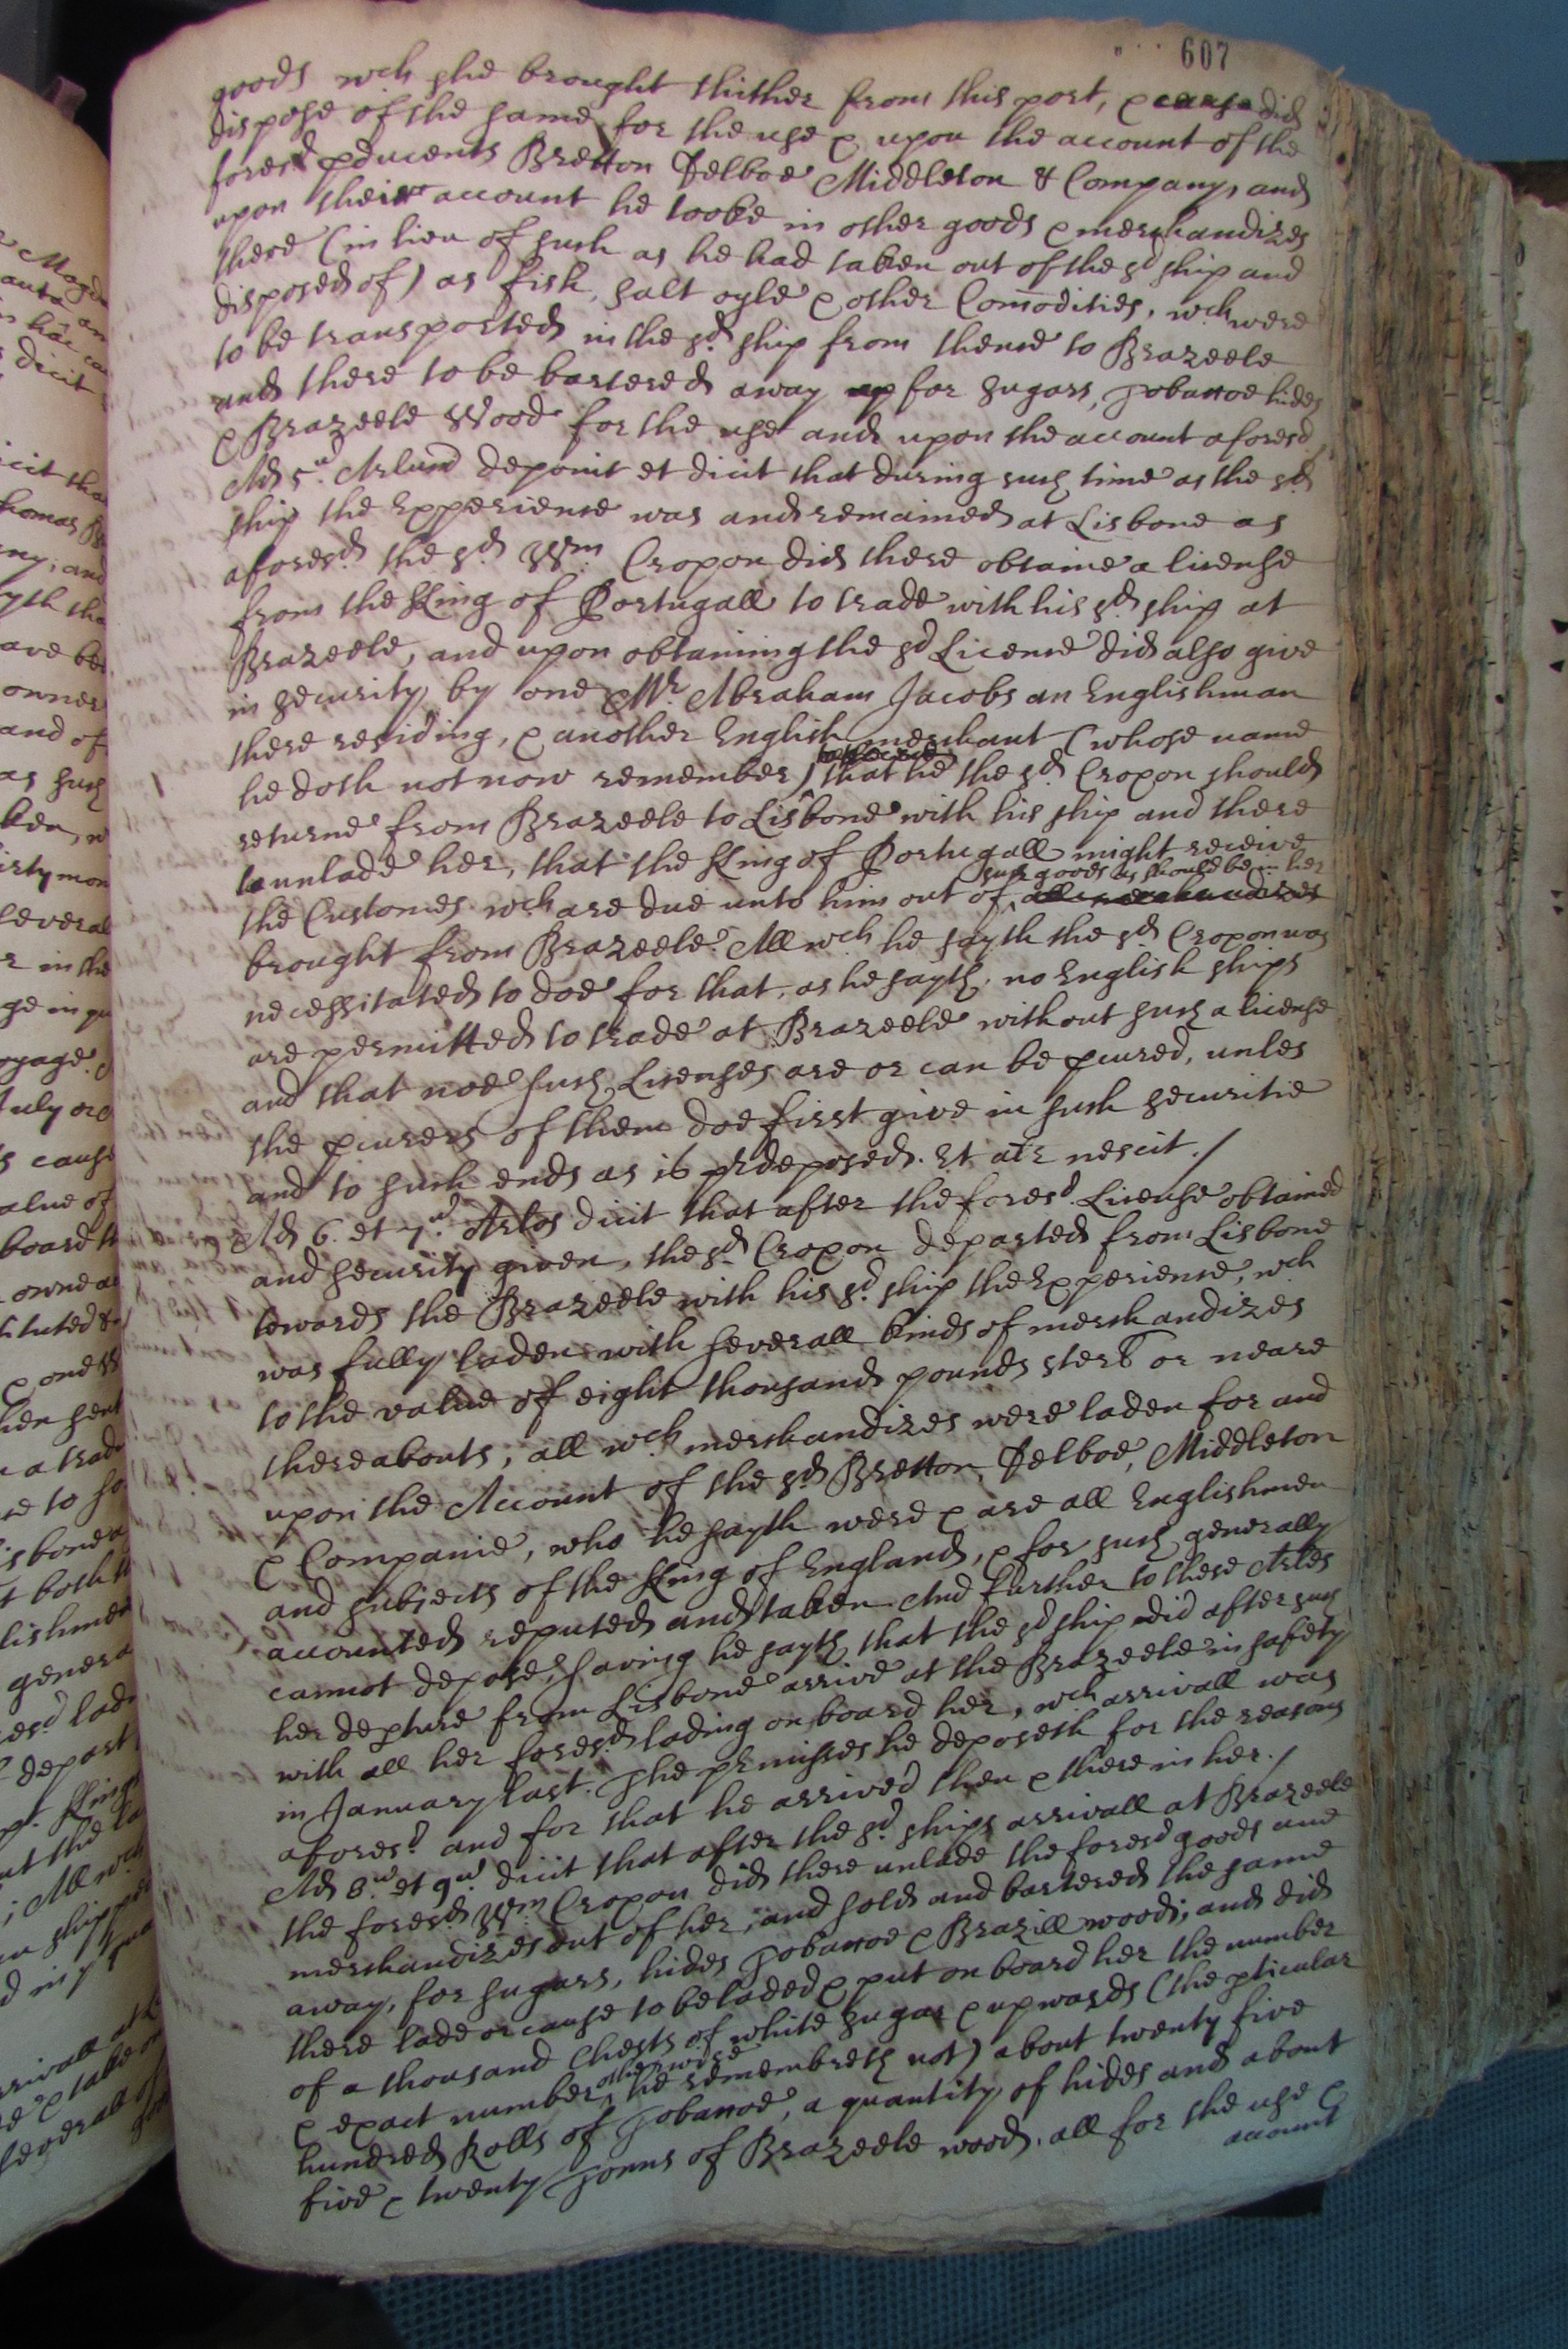 607
goods wch she brought thither from this port, & did
dispose of the same for the use & upon the account of the
foresd pducents Bretton Delboe Middleton & Company, and
upon their account he tooke in other goods & merchandizes
there (in lieu of such as he had taken out of the sd ship and
disposed of) as fish, salt oyle & other Comodities, wch were
to be transported in the sd ship from thence to Brazeele
and there to be bartered away up for sugars, Tobaccoe hides
& Brazeele Wood for the use and upon the account aforesd
Ad 5um Arlum deponit et dicit that during such time as the sd
ship the Experience was and remained at Lisbone as
aforesd the sd Wm Croxon did there obtaine a license
from the King of Portugall to trade with his sd ship at
Brazeele, and upon obtaining the sd Licence did also give
in security by one Mr. Abraham Jacobs an Englishman
there residing, & another English merchant (whose name
he doth not now remember) that he the sd Croxon should
returne from Brazeele to Lisbone with his ship and there
to unlade her, that the King of Portugall might receive
such goods as should be in her
the Customes wch are due unto him out of all merchandizes
brought from Brazeele. All wch he sayth the sd Croxon was
necessitated to doe for that, as he sayth, no English ships
are permitted to trade at Brazeele without such a license
and that noe such Licenses are or can be pcured, unles
the pcurers of them doe first give in such securitie
and to such ends as is pdeposed. Et alr nescit./
Ad 6. et 7um Arlos dicit that after the foresd License obtained
and security given, the sd Croxon departed from Lisbone
towards the Brazeele with his sd ship the Experience, wch
was fully laden with severall kinds of merchandizes
to the value of eight thousand pounds sterl or neare
thereabouts, all wch merchandizes were laden for and
upon the Account of the sd Bretton, Delboe, Middleton
& Companie, who he sayth were & are all Englishmen
and subjects of the King of England, & for such generally
accounted reputed and taken. And further to these Arles
cannot depose, saving he sayth that the sd ship did after such
her depture from Lisbone arrive at the Brazeele in safety
with all her foresd lading on board her, wch arrivall was
in January last. The pmisses he deposeth for the reasons
aforesd and for that he arrived then & there in her./
Ad 8um et 9um dicit that after the sd ships arrivall at Brazeele
the foresd Wm Croxon did there unlade the foresd goods and
merchandizes out of her, and sold and bartered the same
away, for sugars, hides Tobaccoe & Brazill woods, and did
there lade or cause to be laded & put on board her the number
of a thousand Chests of white sugar & upwards (the pticular
& exact number otherwise he remembreth not) about twenty five
hundred Rolls of Tobaccoe, a quantity of hides and about
five & twenty Tonns of Brazeele wood, all for the use &
account